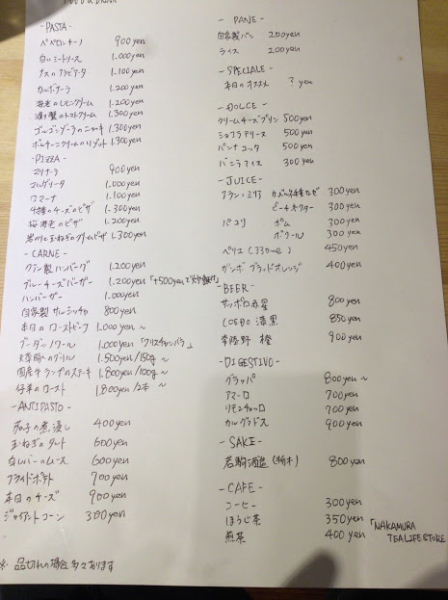 - PASTA -
ペペロンチーノ 900yen
白いミートソース 1.000yen
ナスのアラビアータ 1.100yen
カルボナーラ 1.200yen
海老のレモンクリーム 1.200yen
燻製のトマトクリーム 1.300yen
ゴルゴンゾーラのニョッキ 1.300yen
ポルチーニクリームのリゾット 1.300yen
- PIZZA -
マリナーラ 900yen
マルゲリータ 1.000yen
ロマーナ 1.100yen
4種のチーズのピザ 1.300yen
桜海老のピザ 1.200yen
岩のりと玉ねぎのクリームピザ 1.300yen
- CARNE -
クアン製ハンバーグ 1.200yen
ブルーチーズバーガー 1.200yen
ハンバーガー 1.000yen
自家製サルシッチャ 800yen
本日のローストビーフ 1.000yen ~
ブーダンノワール 1.000yen 「クリスチャンパラ」
大専豚のグリル 1.500yen/150g ~
国産牛ランプのステーキ 1.800yen/100g ~
仔羊のロースト 1.800yen/2本 ~
- ANTIPASTO -
茄子の煮浸し 400yen
玉ねぎのタルト 600yen
白レバーのムース 600yen
フライドポテト 700yen
本日のチーズ 900yen
ジャイアントコーン 300yen
※ 品切れの場合多々あります
- PANE -
自家製パン 200yen
ライス 200yen
- SPECIALE -
本日のオススメ ? yen
- DOLCE -
クリームチーズプリン 500yen
ショコラテリーヌ 500yen
パンナコッタ 500yen
バニラアイス 300yen
- JUICE -
アラン・ミリア 300yen
ピーチネクター 300yen
パゴリ ポム 300yen
ポワール 300yen
ペリエ (330ml) 450yen
ガンボ ブラッドオレンジ 400yen
- BEER -
サッポロ赤星 800yen
COEDO 漆黒 850yen
常陸野 橙 900yen
- DIGESTIVO -
グラッパ 800yen ~
アマーロ 700yen
リモンチェッロ 700yen
カルヴァドス 900yen
- SAKE -
若駒酒造 (栃木) 800yen
- CAFE -
コーヒー 300yen
ほうじ茶 350yen 「NAKAMURA
煎茶 400yen TEA LIFE STORE